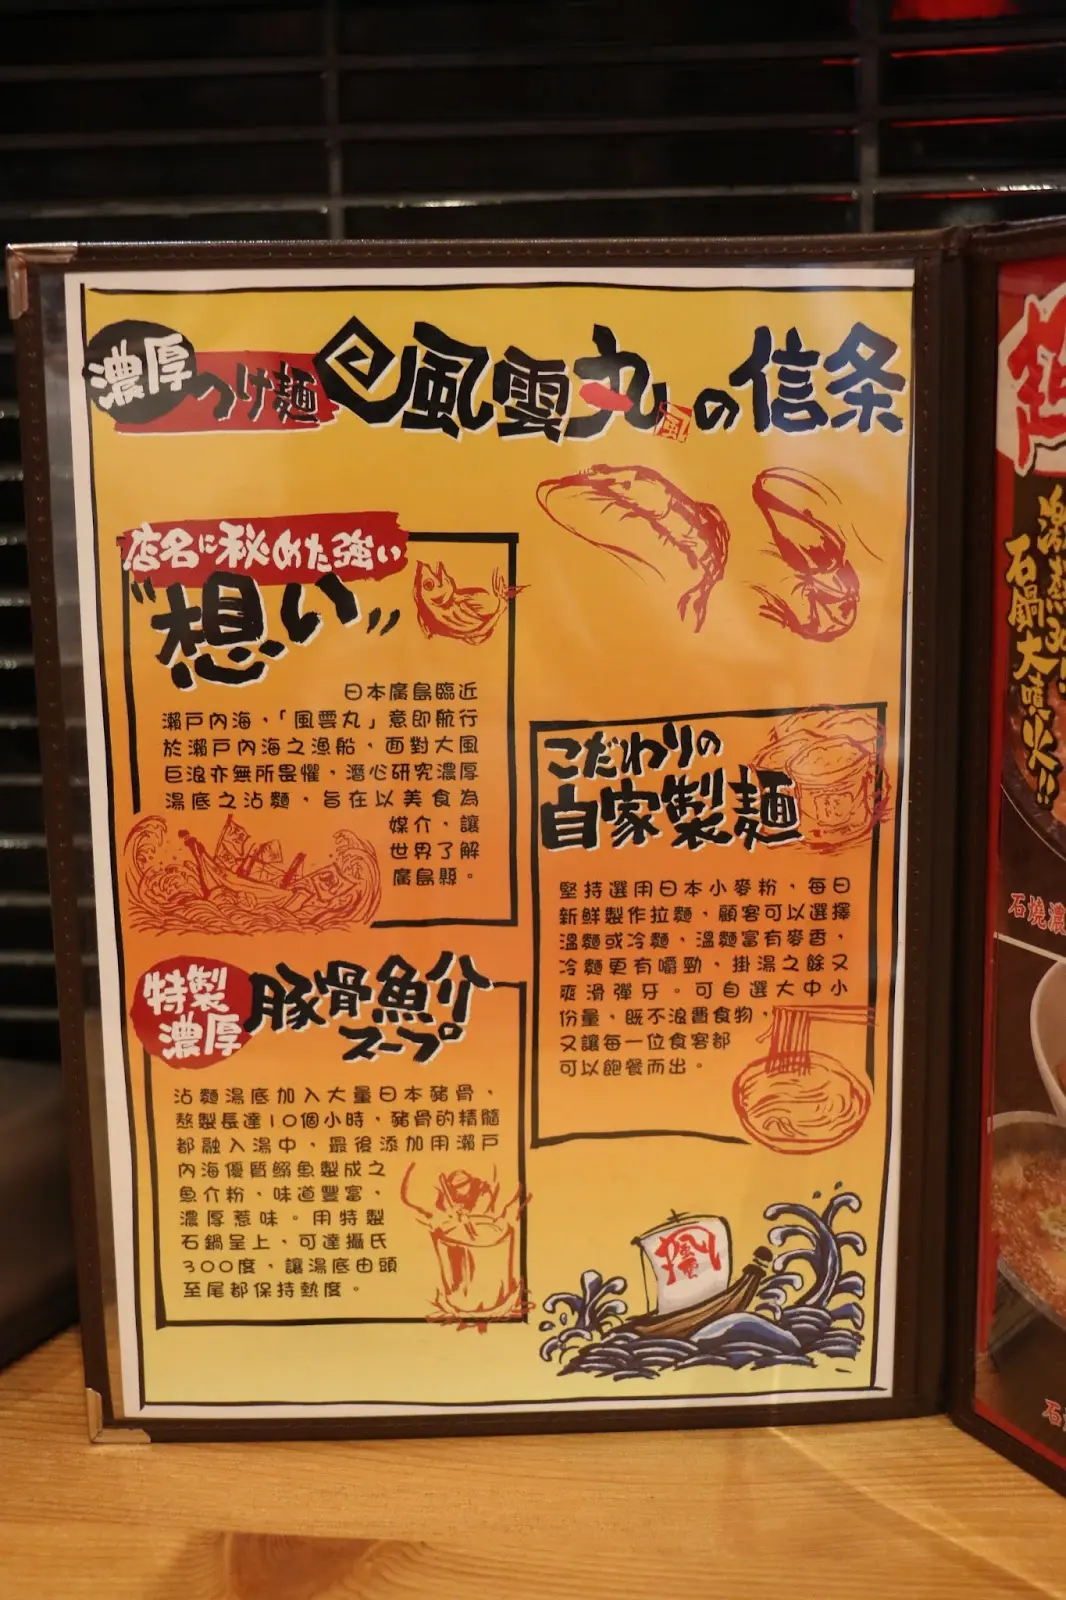 濃厚つけ麺 風雲丸の信条
店名に秘めた強い
"想い"
日本廣島臨近
瀨戶內海，「風雲丸」意即航行
於瀨戶內海之漁船，面對大風
巨浪亦無所畏懼，潛心研究濃厚
湯底之沾麵，旨在以美食為
媒介，讓
世界了解
廣島縣。
こだわりの
自家製麺
堅持選用日本小麥粉，每日
新鮮製作拉麵，顧客可以選擇
溫麵或冷麵，溫麵富有麥香，
冷麵更有嚼勁，掛湯之餘又
爽滑彈牙。可自選大中小
份量，既不浪費食物，
又讓每一位食客都
可以飽餐而出。
特製
濃厚
豚骨魚介
スープ
沾麵湯底加入大量日本豬骨，
熬製長達10個小時，豬骨的精髓
都融入湯中，最後添加用瀨戶
內海優質鰯魚製成之
魚介粉，味道豐富，
濃厚惹味。用特製
石鍋呈上，可達攝氏
300度，讓湯底由頭
至尾都保持熱度。
風雲
石鍋大噴火!!
石燒濃